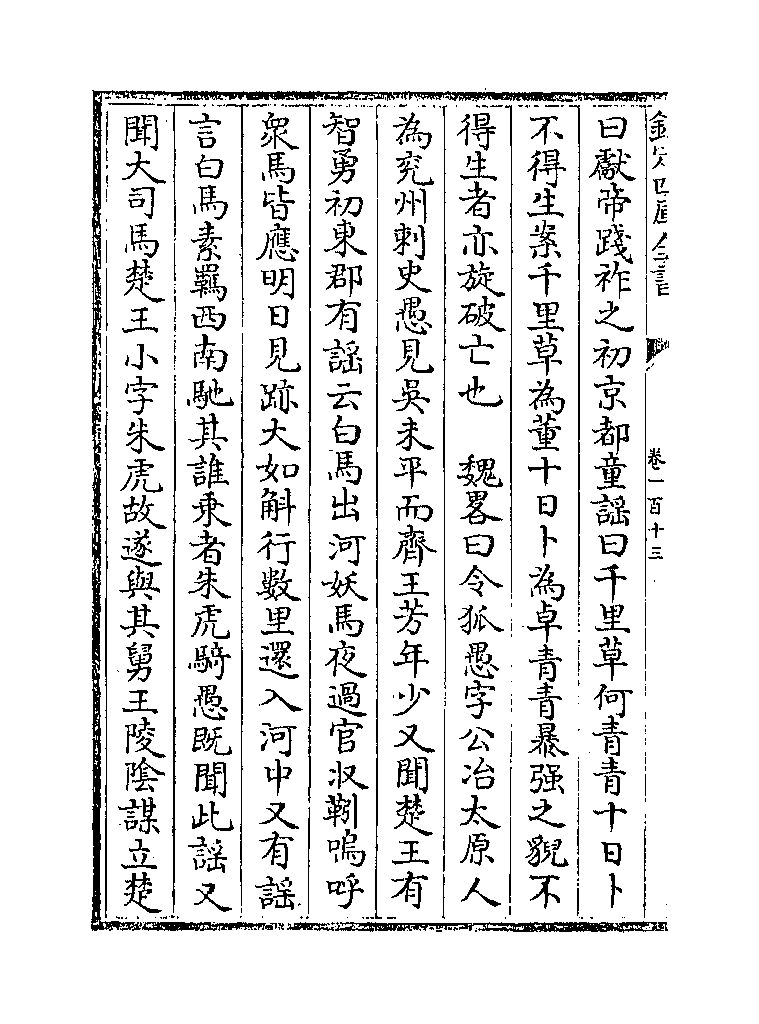 欽定四庫全書
卷一百十三
曰獻帝踐祚之初京都童謡曰千里草何青青十日卜
不得生案千里草為董十日卜為卓青青暴强之貌不
得生者亦旋破亡也　魏畧曰令狐愚字公冶太原人
為兖州刺史愚見吳未平而齊王芳年少又聞楚王有
智勇初東郡有謡云白馬出河妖馬夜過官汊鞹嗚呼
衆馬皆應明日見跡大如斛行數里還入河中又有謡
言白馬素羈西南馳其誰乗者朱虎騎愚既聞此謡又
聞大司馬楚王小字朱虎故遂與其舅王陵隂謀立楚